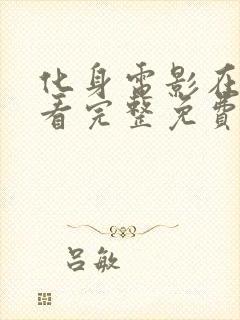 化身雷影在
看完整免費
吕敏